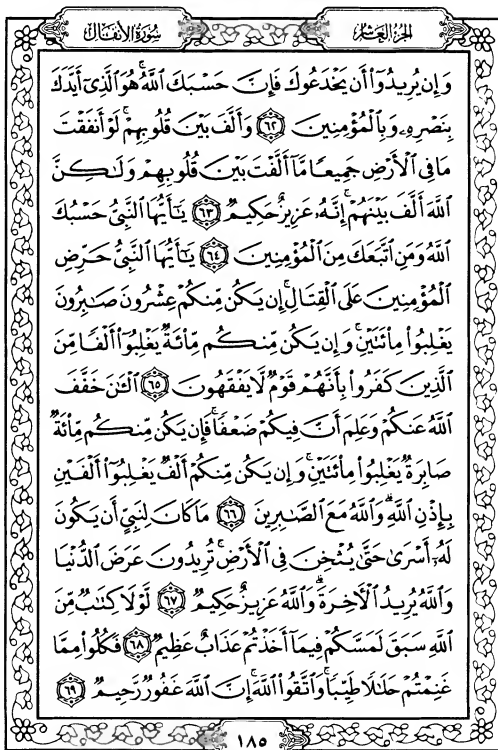 الجزء العاشر
سورة الأنفال
وَإِن يُرِيدُوٓا۟ أَن يَخْدَعُوكَ فَإِنَّ حَسْبَكَ ٱللَّهُ ۚ هُوَ ٱلَّذِىٓ أَيَّدَكَ
بِنَصْرِهِۦ وَبِٱلْمُؤْمِنِينَ ٦٢ وَأَلَّفَ بَيْنَ قُلُوبِهِمْ ۚ لَوْ أَنفَقْتَ
مَا فِى ٱلْأَرْضِ جَمِيعًا مَّآ أَلَّفْتَ بَيْنَ قُلُوبِهِمْ وَلَٰكِنَّ
ٱللَّهَ أَلَّفَ بَيْنَهُمْ ۚ إِنَّهُۥ عَزِيزٌ حَكِيمٌ ٦٣ يَٰٓأَيُّهَا ٱلنَّبِىُّ حَسْبُكَ
ٱللَّهُ وَمَنِ ٱتَّبَعَكَ مِنَ ٱلْمُؤْمِنِينَ ٦٤ يَٰٓأَيُّهَا ٱلنَّبِىُّ حَرِّضِ
ٱلْمُؤْمِنِينَ عَلَى ٱلْقِتَالِ ۚ إِن يَكُن مِّنكُمْ عِشْرُونَ صَٰبِرُونَ
يَغْلِبُوا۟ مِا۟ئَتَيْنِ ۚ وَإِن يَكُن مِّنكُم مِّا۟ئَةٌ يَغْلِبُوٓا۟ أَلْفًا مِّنَ
ٱلَّذِينَ كَفَرُوا۟ بِأَنَّهُمْ قَوْمٌ لَّا يَفْقَهُونَ ٦٥ ٱلْـَٰٔنَ خَفَّفَ
ٱللَّهُ عَنكُمْ وَعَلِمَ أَنَّ فِيكُمْ ضَعْفًا ۚ فَإِن يَكُن مِّنكُم مِّا۟ئَةٌ
صَابِرَةٌ يَغْلِبُوا۟ مِا۟ئَتَيْنِ ۚ وَإِن يَكُن مِّنكُمْ أَلْفٌ يَغْلِبُوٓا۟ أَلْفَيْنِ
بِإِذْنِ ٱللَّهِ ۗ وَٱللَّهُ مَعَ ٱلصَّٰبِرِينَ ٦٦ مَا كَانَ لِنَبِىٍّ أَن يَكُونَ
لَهُۥٓ أَسْرَىٰ حَتَّىٰ يُثْخِنَ فِى ٱلْأَرْضِ ۚ تُرِيدُونَ عَرَضَ ٱلدُّنْيَا
وَٱللَّهُ يُرِيدُ ٱلْءَاخِرَةَ ۗ وَٱللَّهُ عَزِيزٌ حَكِيمٌ ٦٧ لَّوْلَا كِتَٰبٌ مِّنَ
ٱللَّهِ سَبَقَ لَمَسَّكُمْ فِيمَآ أَخَذْتُمْ عَذَابٌ عَظِيمٌ ٦٨ فَكُلُوا۟ مِمَّا
غَنِمْتُمْ حَلَٰلًا طَيِّبًا ۚ وَٱتَّقُوا۟ ٱللَّهَ ۚ إِنَّ ٱللَّهَ غَفُورٌ رَّحِيمٌ ٦٩
١٨٥